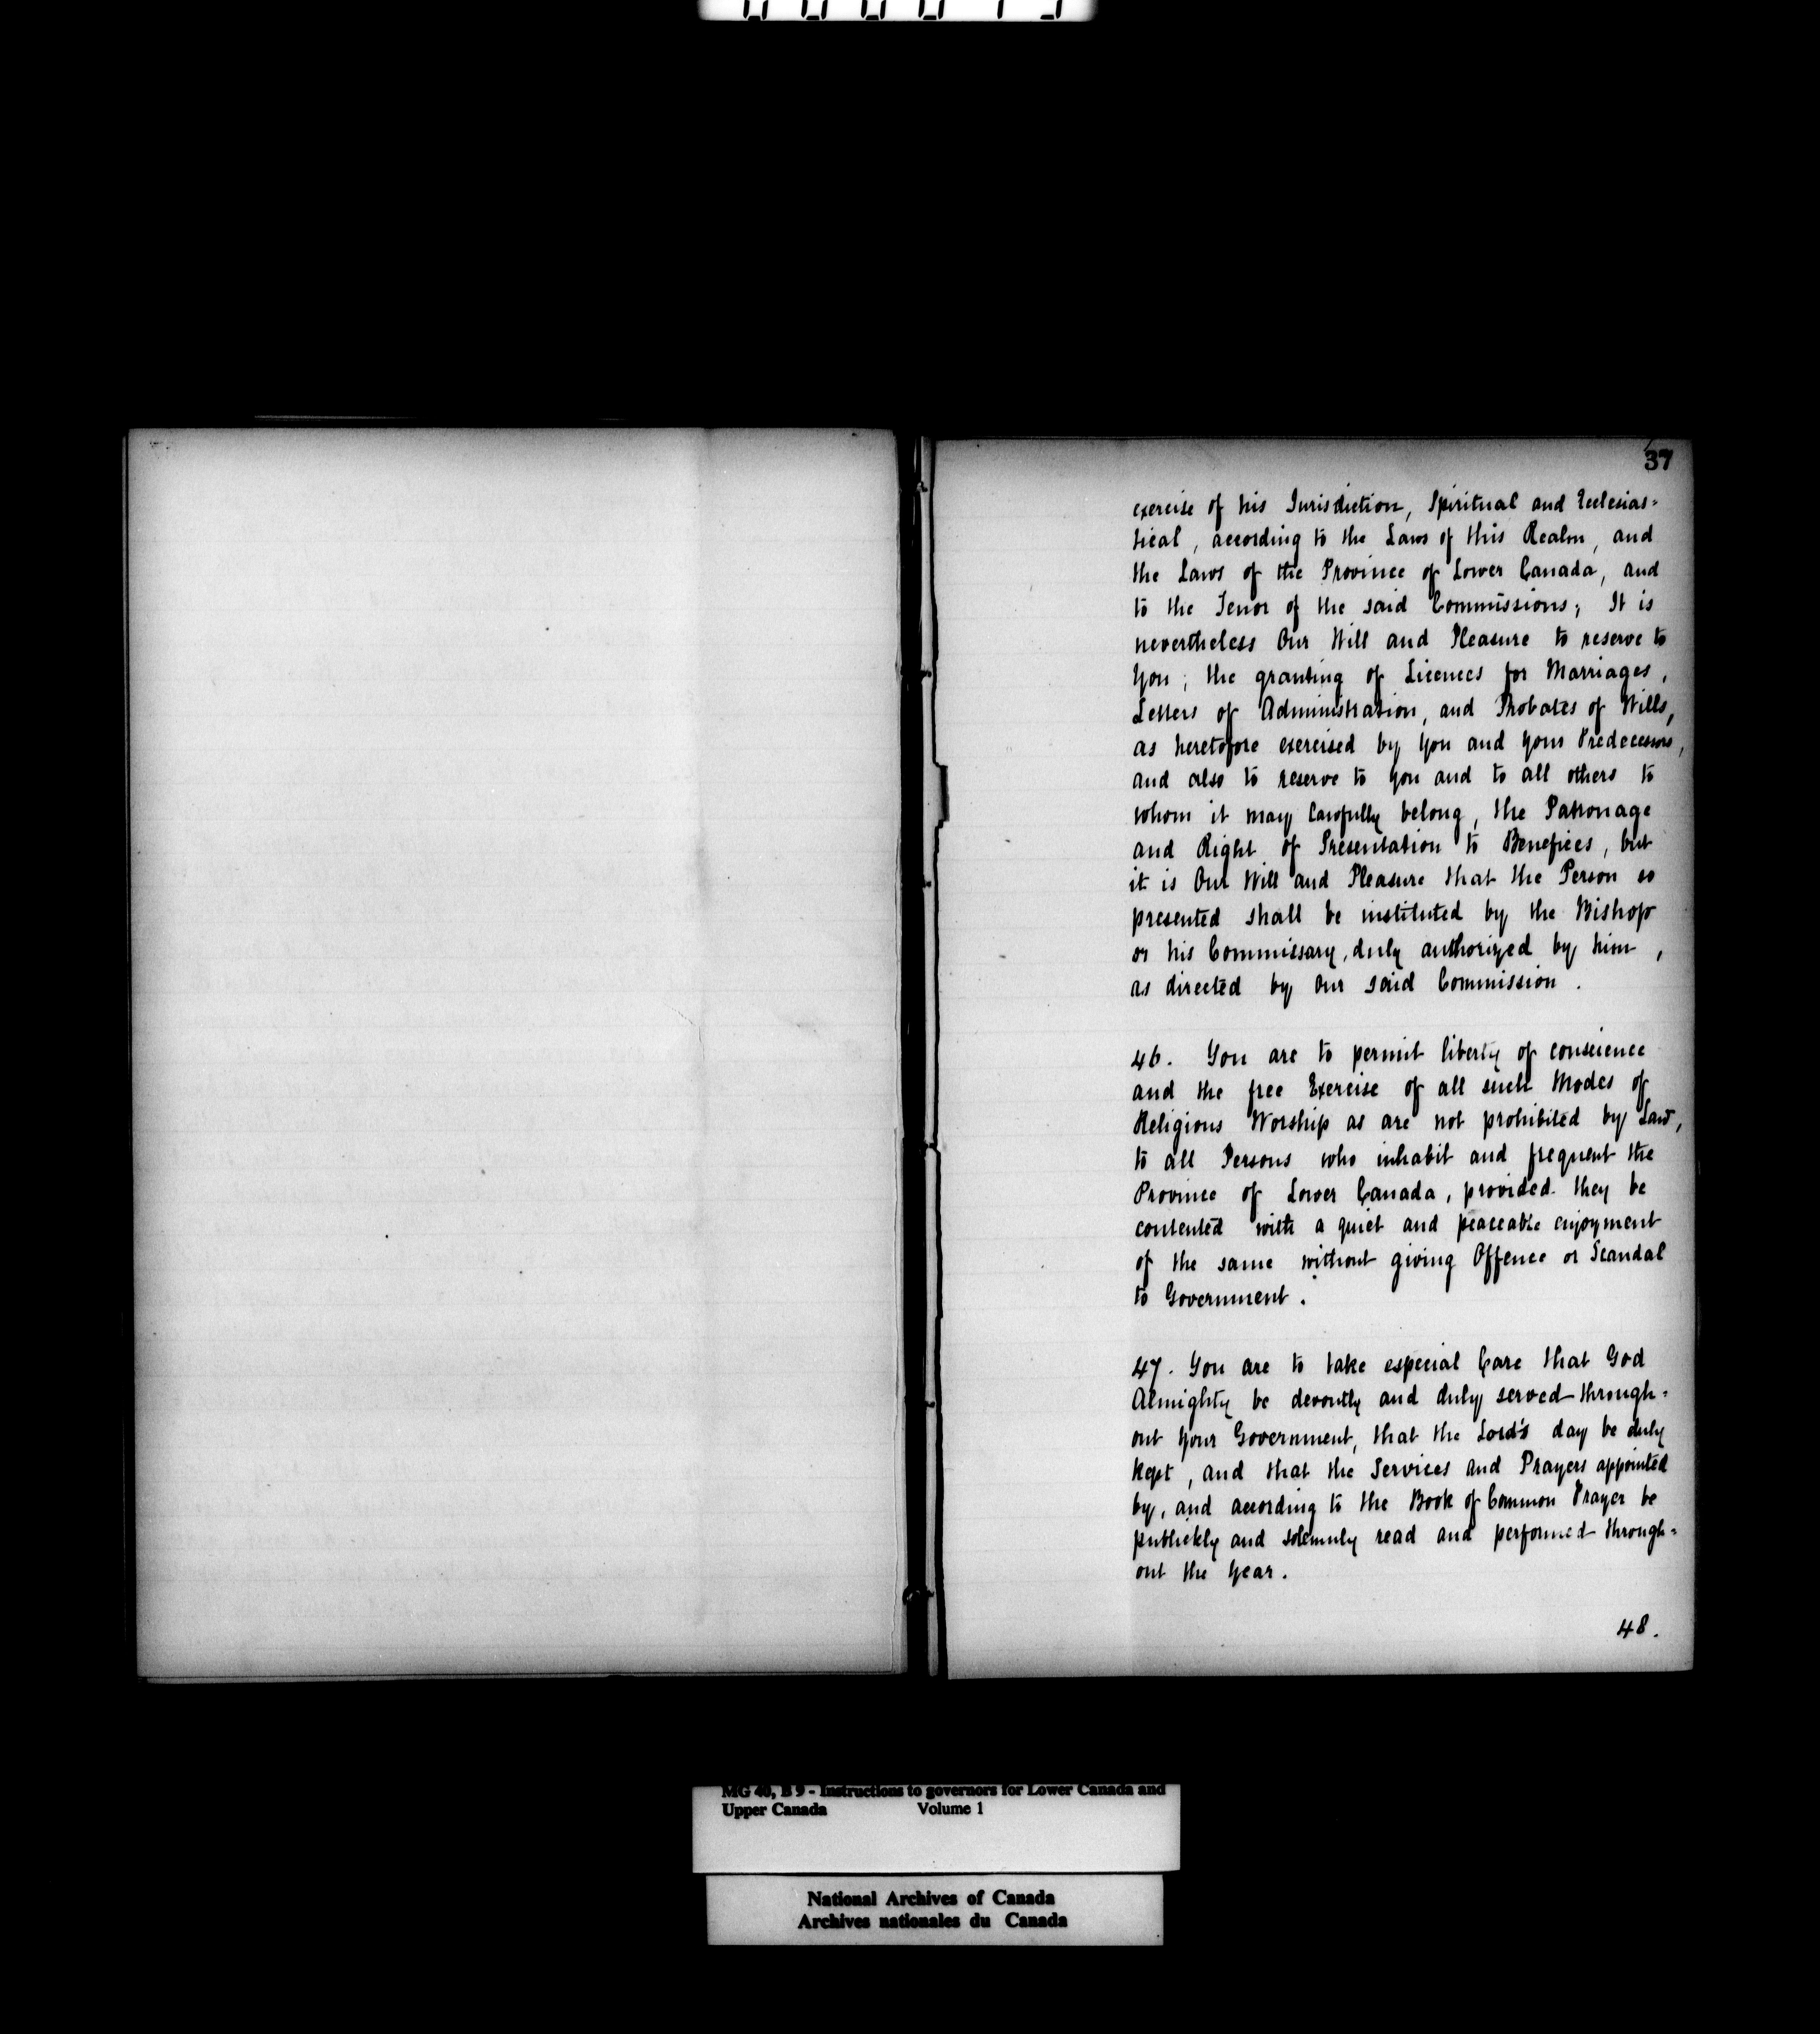 37
exercise of his Jurisdiction, Spiritual and Ecclesias=
tical, according to the Laws of this Realm, and
the Laws of the Province of Lower Canada, and
to the Tenor of the said Commissions; It is
nevertheless Our Will and Pleasure to reserve to
You; the granting of Licences for Marriages,
Letters of Administration, and Probates of Wills,
as heretofore exercised by You and Your Predecessors,
and also to reserve to You and to all others to
whom it may Lawfully belong, the Patronage
and Right of Presentation to Benefices, but
it is Our Will and Pleasure that the Person so
presented shall be instituted by the Bishop
or his Commissary, duly authorized by him,
as directed by Our said Commission.
46. You are to permit liberty of conscience
and the free Exercise of all such Modes of
Religious Worship as are not prohibited by Law,
to all Persons who inhabit and frequent the
Province of Lower Canada, provided they be
contented with a quiet and peaceable enjoyment
of the same without giving Offence or Scandal
to Government.
47. You are to take especial Care that God
Almighty be devoutly and duly served through=
out Your Government, that the Lord's day be duly
kept, and that the Services and Prayers appointed
by, and according to the Book of Common Prayer be
publickly and solemnly read and performed through=
out the Year.
48.
MG 40, B 9 - Instructions to governors for Lower Canada and
Upper Canada Volume 1
National Archives of Canada
Archives nationales du Canada